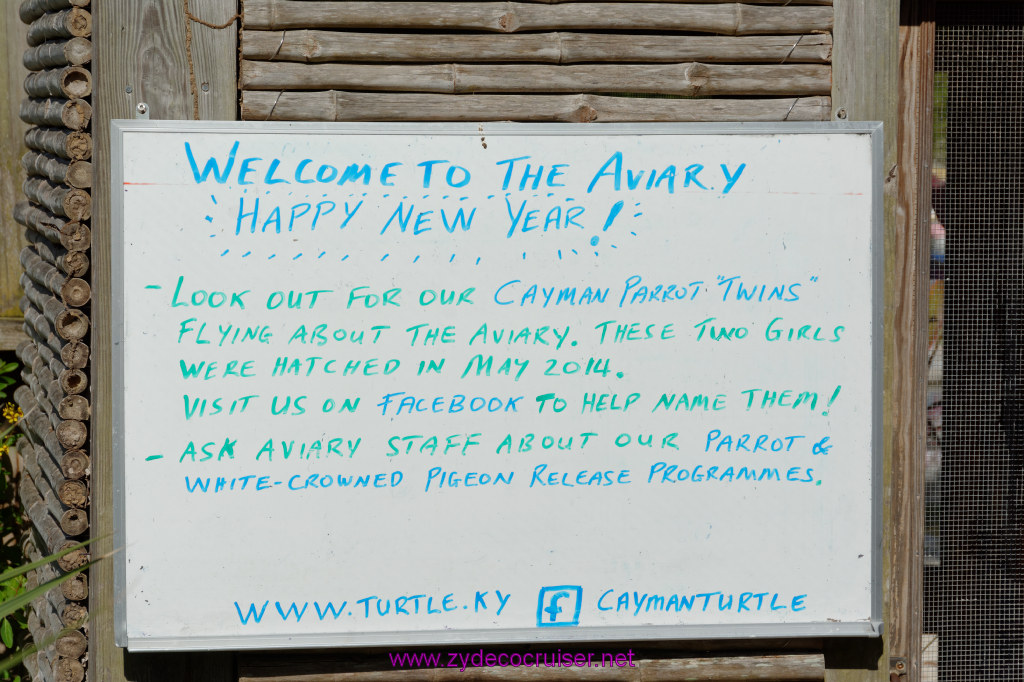 WELCOME TO THE AVIARY
HAPPY NEW YEAR!
- LOOK OUT FOR OUR CAYMAN PARROT "TWINS"
FLYING ABOUT THE AVIARY. THESE TWO GIRLS
WERE HATCHED IN MAY 2014.
VISIT US ON FACEBOOK TO HELP NAME THEM!
- ASK AVIARY STAFF ABOUT OUR PARROT &
WHITE-CROWNED PIGEON RELEASE PROGRAMMES.
WWW.TURTLE.KY f CAYMANTURTLE
www.zydecocruiser.net